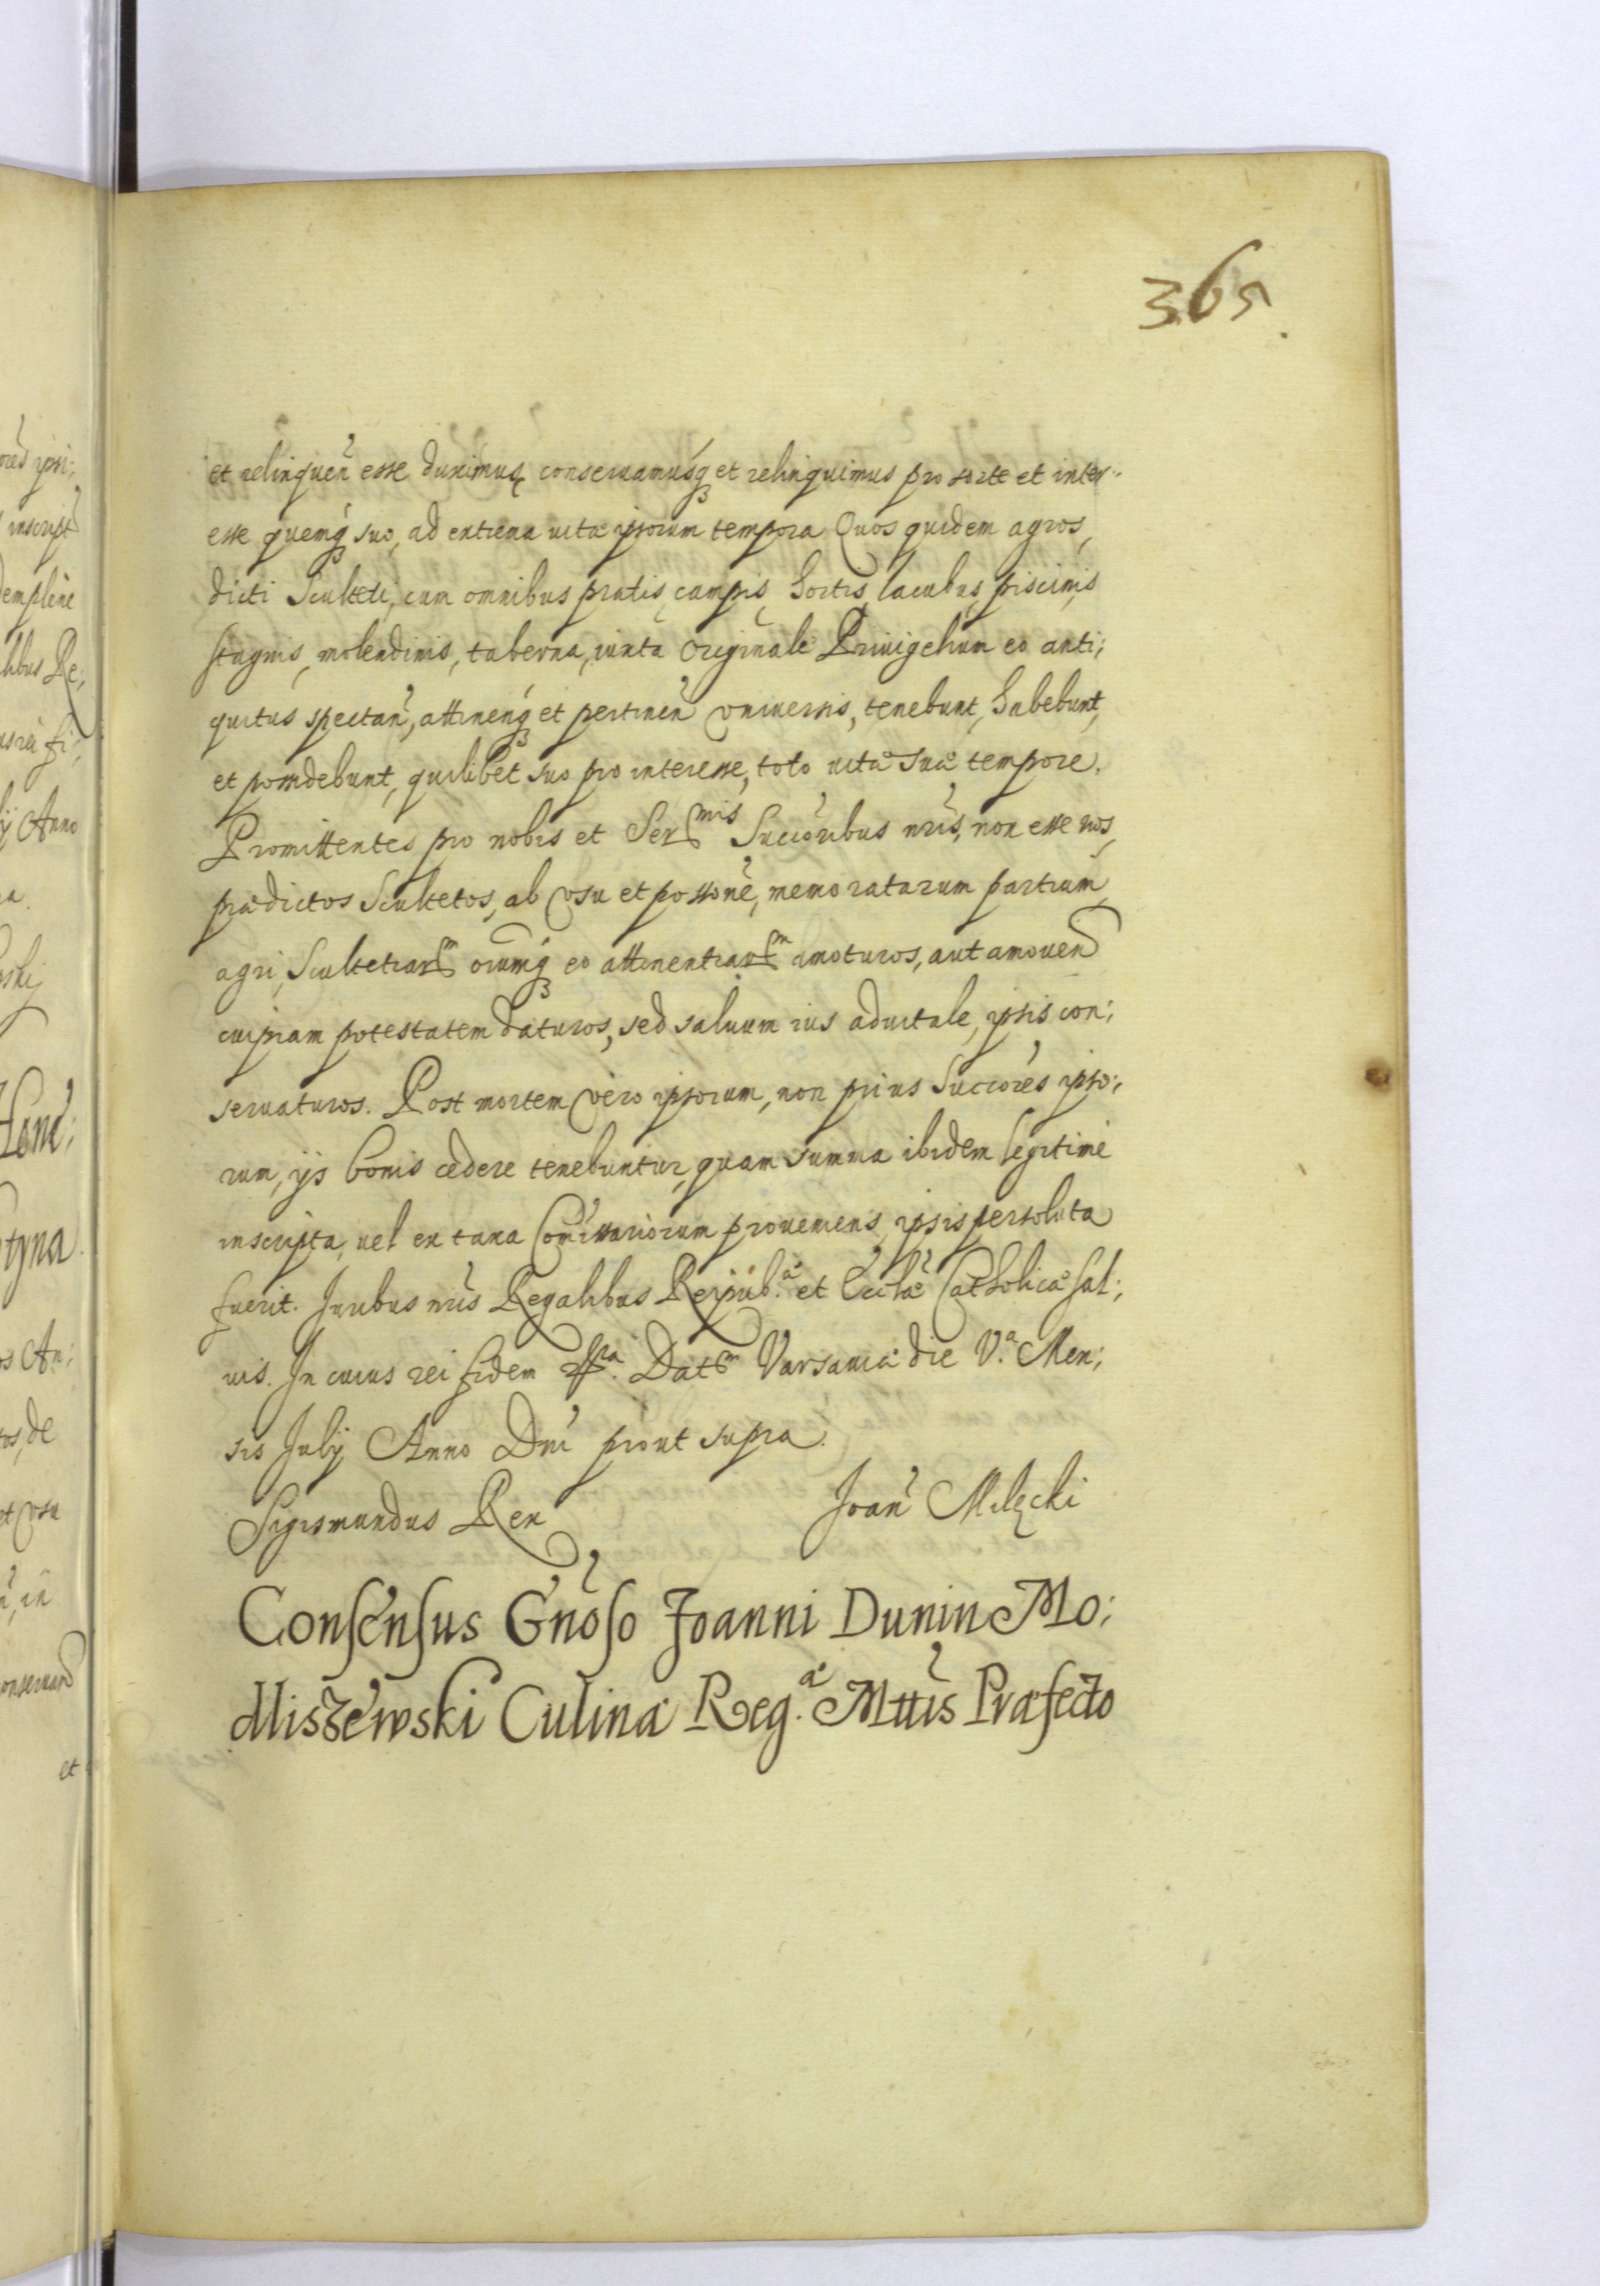 365.
et relinquen̄ esse duximus, conseruamusq₃ et relinquimus pro sorte et inter-
esse quemq₃ suo, ad extrema uitæ ipsorum tempora Quos quidem agros,
dicti Sculteti, cum omnibus pratis, campis, hortis, lacubus, piscinis,
stagnis, molendinis, taberna, iuxta originale Priuigelium eo anti;
quitus spectan̄, attinenq₃ et pertinen̄ vniuersis, tenebunt, habebunt,
et possidebunt, quilibet suo pro interesse, toto uitæ suæ tempore.
Promittentes pro nobis et Sermis Succoribus nris, non esse nos,
prædictos Scultetos, ab vsu et possone, memoratarum partium
agri, Scultetiarm oiumq₃ eo attinentiarm amoturos, aut amouend
cuipiam potestatem daturos, sed saluum ius aduitale, ipsis con;
seruaturos. Post mortem vero ipsorum, non prius Succores ipso;
rum, ijs bonis cedere tenebuntur, quam summa ibidem legitime
inscripta, uel ex taxa Comissariorum proueniens, ipsis persoluta
fuerit. Juribus nris Regalibus Reipub.æ et Ecclæ Catholicæ sal;
uis. In cuius rei fidem Datm Varsauiæ die V.a Men;
sis Julij Anno Dni prout supra.
Sigismundus Rex Joan̄ Milęcki
Consensus Gnoso Joanni Dunin Mo;
dliszewski Culinæ Reg.æ Mttis Præfecto
ipsi;
inscript
emplene
libus Re;
ij Anno
a.
tyna
os An;
tos, de
et vsu
in
onseruand
et